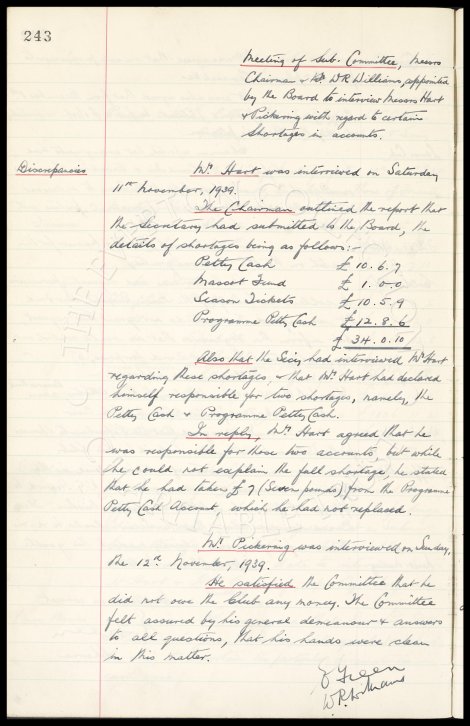 243
Meeting of Sub. Committee, Messrs
Chairman & Mr. W R Williams, appointed
by the Board to interview Messrs Hart
& Pickering with regard to certain
Shortages in accounts.
Discrepancies
Mr. Hart was interviewed on Saturday
11th November, 1939.
The Chairman outlined the report that
the Secretary had submitted to the Board, the
details of shortages being as follows:-
Petty Cash £ 10. 6. 7
Mascot Fund £ 1. 0. 0
Season Tickets £ 10. 5. 9
Programme Petty Cash £ 12. 8. 6
£ 34. 0. 10
Also that the Secy had interviewed Mr Hart
regarding these shortages, & that Mr. Hart had declared
himself responsible for two shortages, namely, the
Petty Cash & Programme Petty Cash.
In reply, Mr. Hart agreed that he
was responsible for those two accounts, but while
he could not explain the full shortage, he stated
that he had taken £7 (Seven pounds) from the Programme
Petty Cash Account, which he had not replaced.
Mr. Pickering was interviewed on Sunday,
the 12th November, 1939.
He satisfied the Committee that he
did not owe the Club any money. The Committee
felt assured by his general demeanour & answers
to all questions, that his hands were clean
in this matter.
Green
W.R. Williams